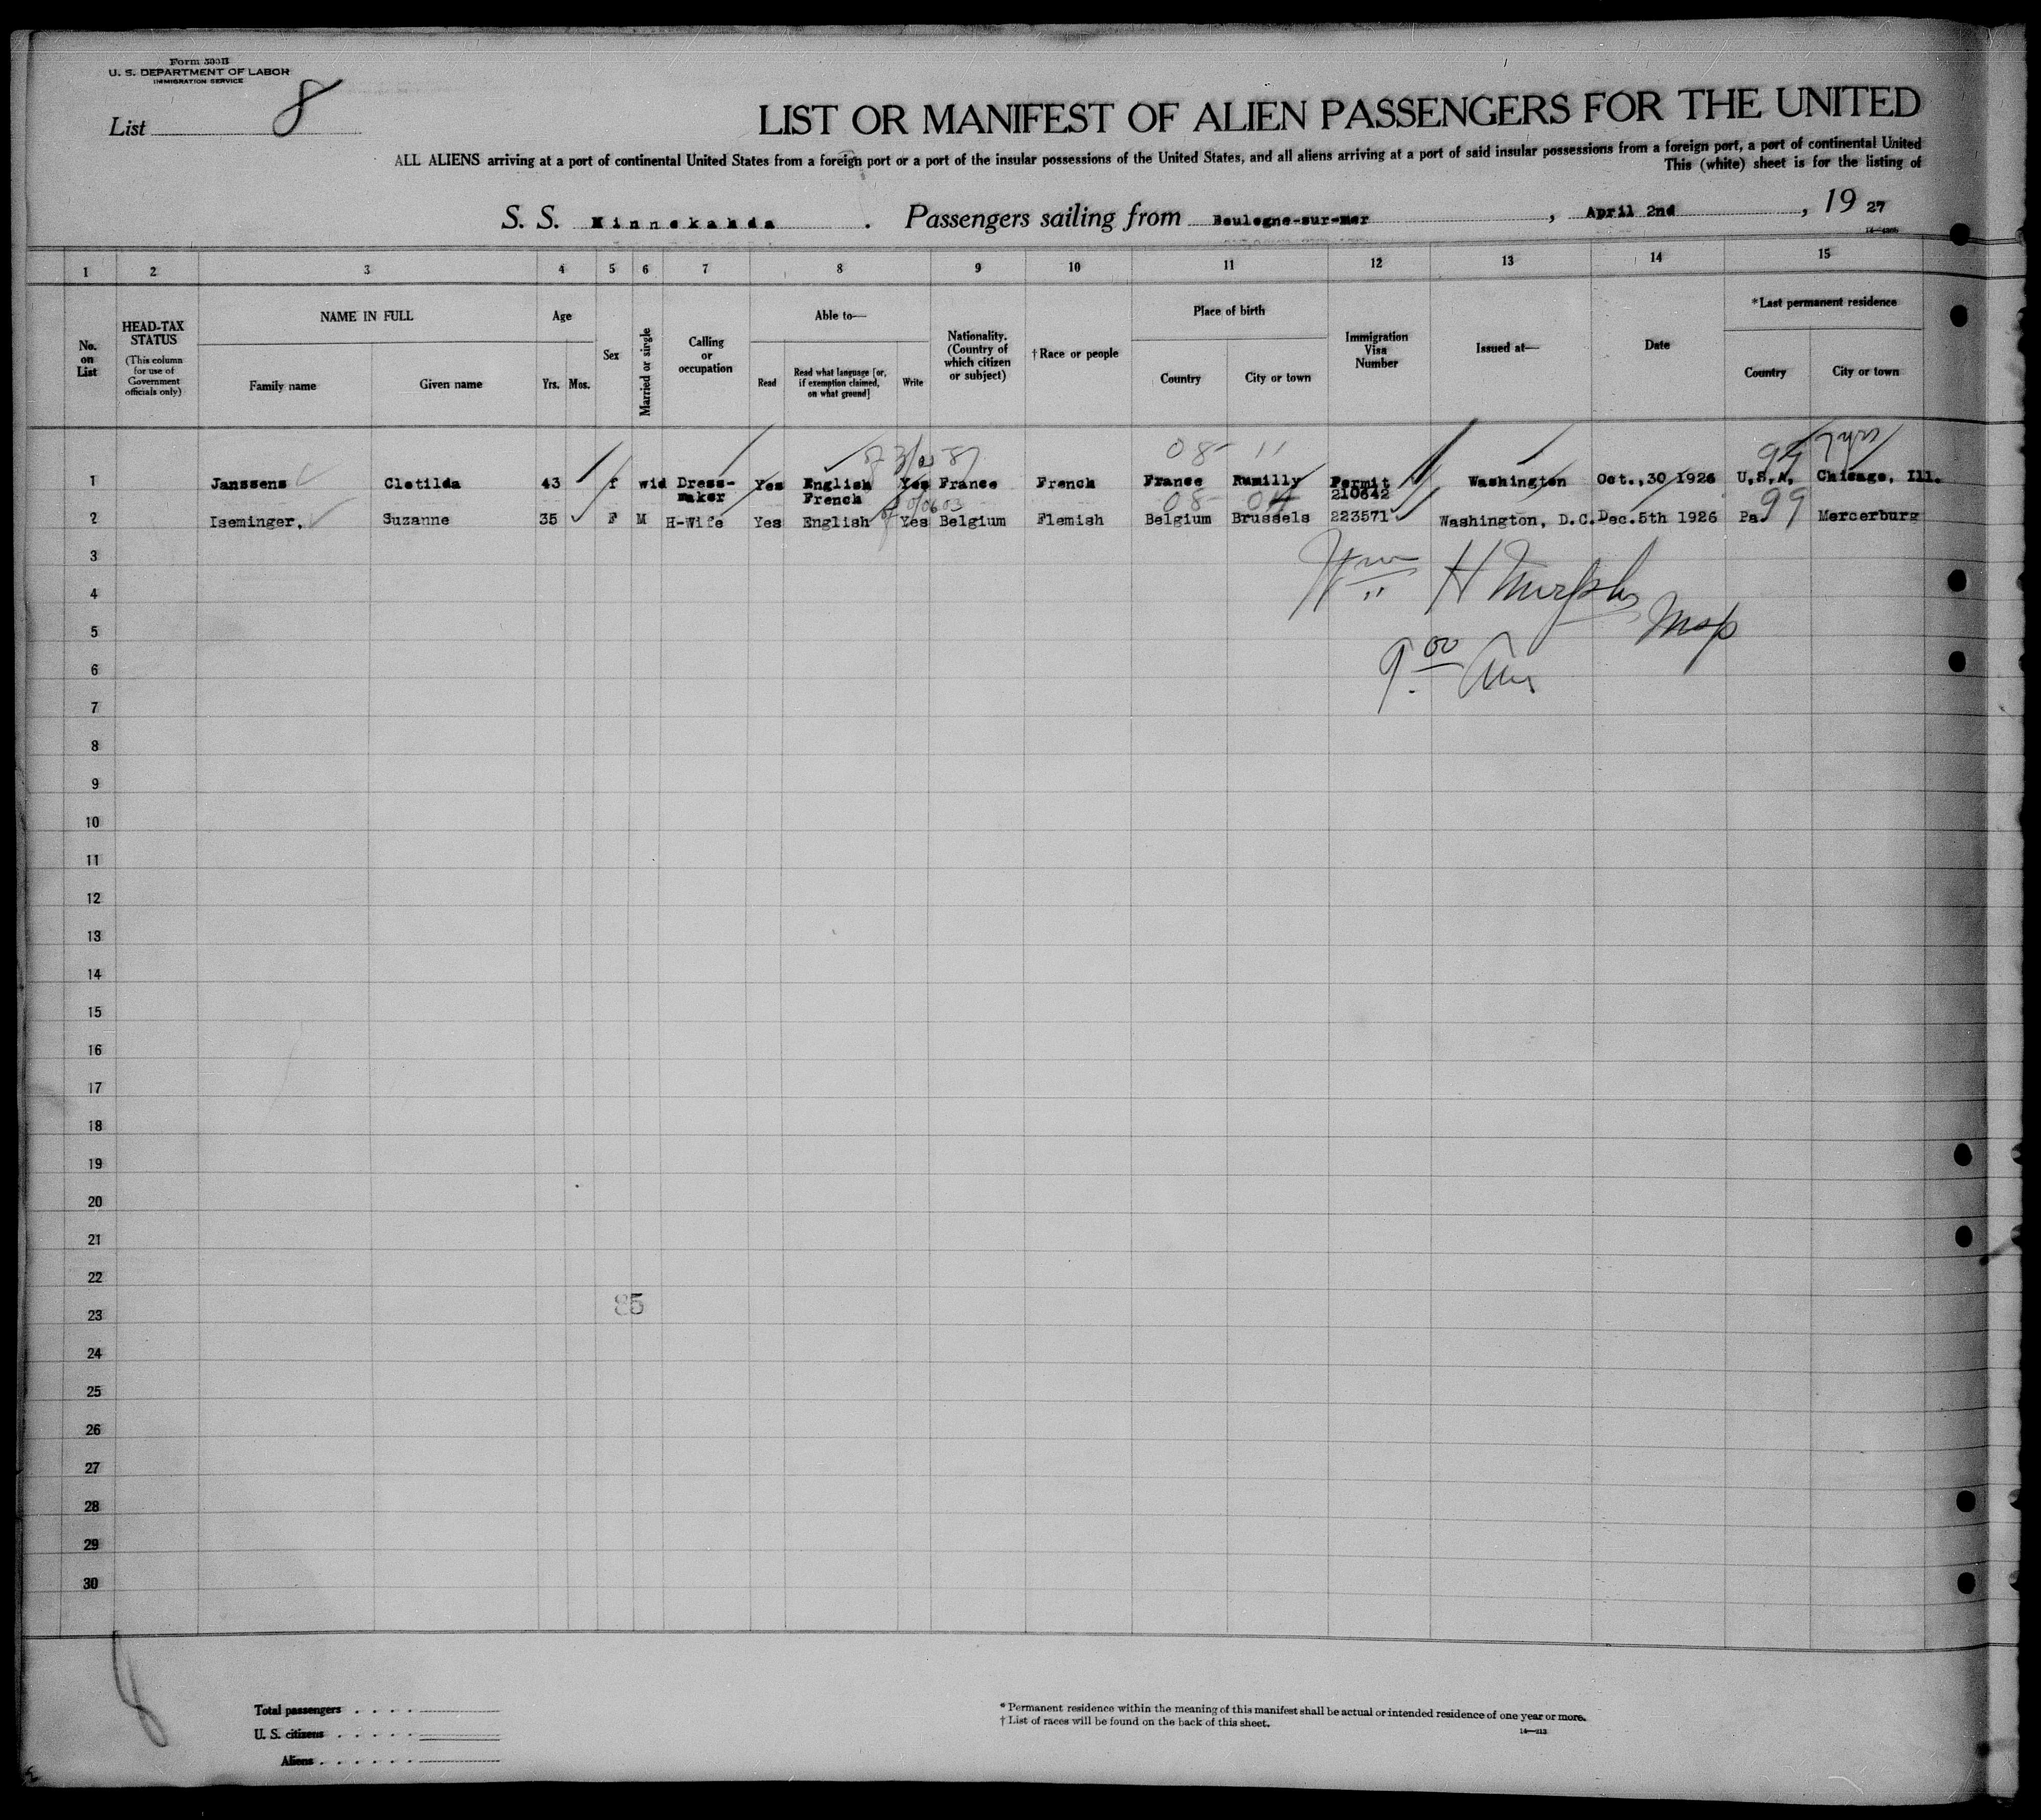 Form 500B
U. S. DEPARTMENT OF LABOR
IMMIGRATION SERVICE
List 8
LIST OR MANIFEST OF ALIEN PASSENGERS FOR THE UNITED
ALL ALIENS arriving at a port of continental United States from a foreign port or a port of the insular possessions of the United States, and all aliens arriving at a port of said insular possessions from a foreign port, a port of continental United
This (white) sheet is for the listing of
S. S. Minnekahda . Passengers sailing from Boulogne-sur-mer , April 2nd , 19 27
1 2 3 4 5 6 7 8 9 10 11 12 13 14 15
No. on List
HEAD-TAX STATUS
(This column for use of Government officials only)
NAME IN FULL
Family name Given name
Age
Yrs. Mos.
Sex
Married or single
Calling or occupation
Able to—
Read
Read what language [or, if exemption claimed, on what ground]
Write
Nationality. (Country of which citizen or subject)
†Race or people
Place of birth
Country City or town
Immigration Visa Number
Issued at—
Date
*Last permanent residence
Country City or town
08 11 99 7 yrs
1 Janssens Clotilda 43 f wid Dress-maker Yes English French Yes France French France Rumilly Permit 210642 Washington Oct.,30 1926 U.S.A, Chicago, Ill.
08 04 99
2 Iseminger, Suzanne 35 F M H-Wife Yes English Yes Belgium Flemish Belgium Brussels 223571 Washington, D.C. Dec.5th 1926 Pa. Mercerburg
3
Wm H Murphy
4
5
Insp
6
9.00 Am
7
8
9
10
11
12
13
14
15
16
17
18
19
20
21
22
23
85
24
25
26
27
28
29
30
8
Total passengers . . . .
U. S. citizens . . . . .
Aliens . . . . . .
* Permanent residence within the meaning of this manifest shall be actual or intended residence of one year or more.
† List of races will be found on the back of this sheet.
14—213